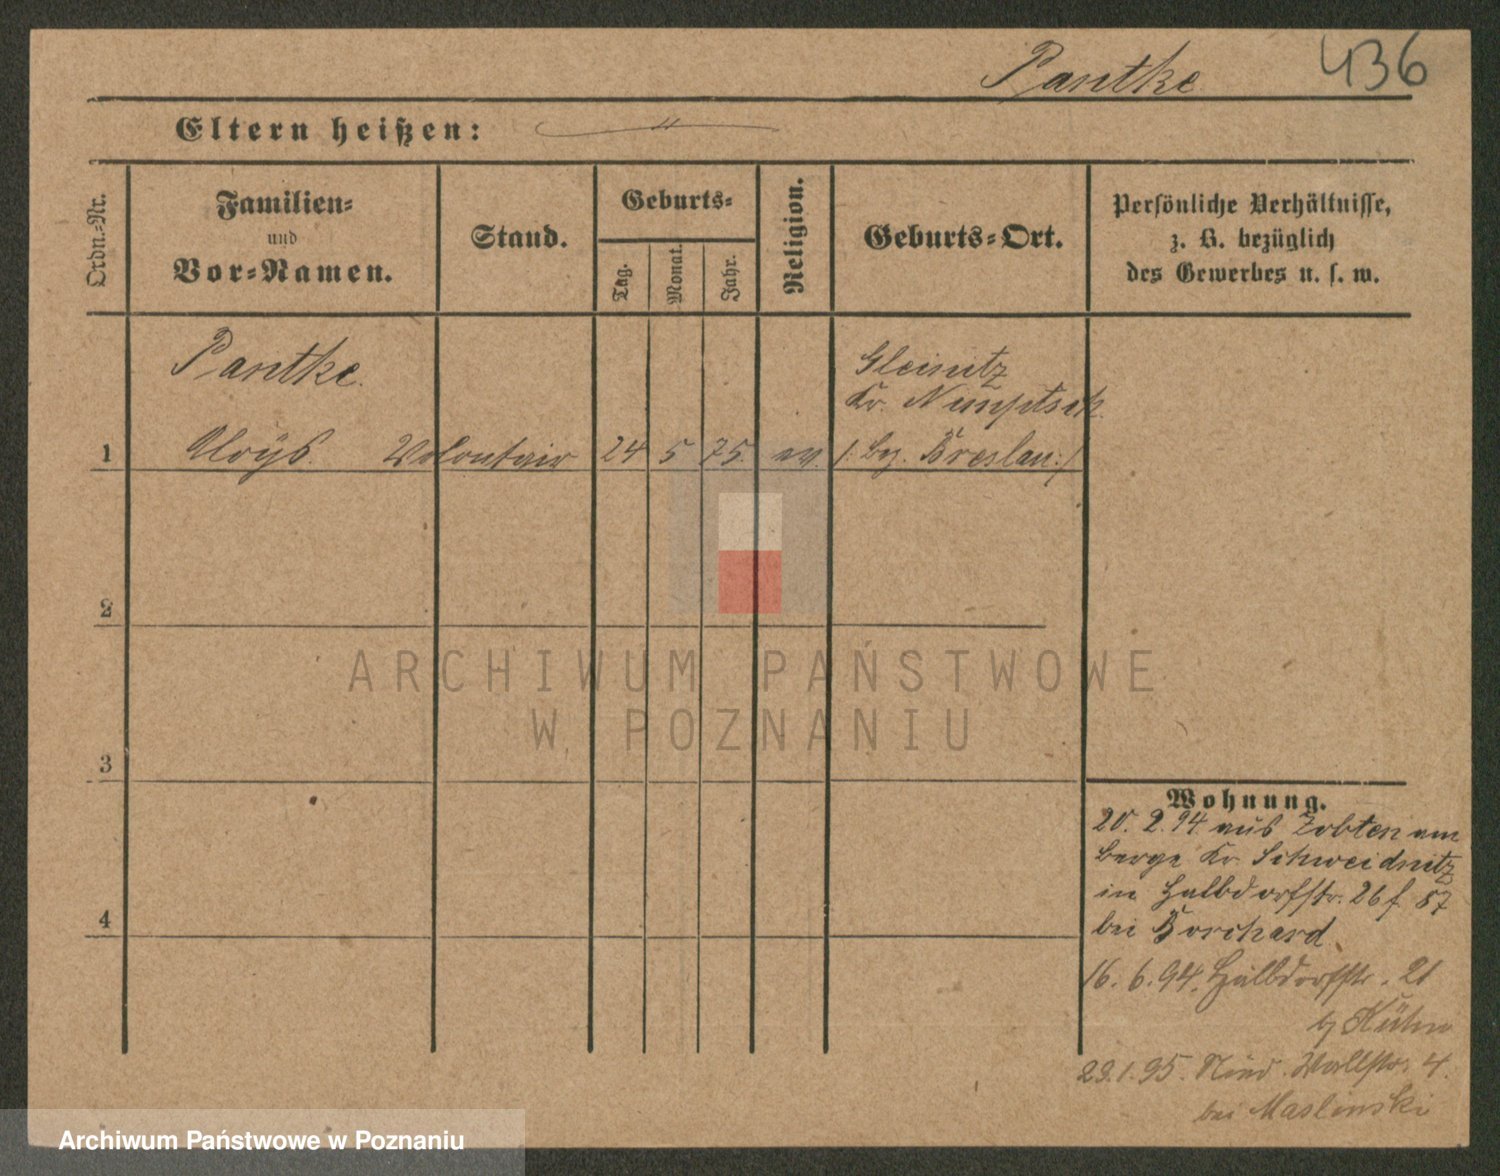 Pantke 436
Eltern heißen:
Ordn.-Nr.
Familien-
und
Vor-Namen.
Stand.
Geburts-
Tag.
Monat.
Jahr.
Religion.
Geburts-Ort.
Persönliche Verhältnisse,
z. B. bezüglich
des Gewerbes u. s. w.
Pantke.
Gleinitz
Kr. Nimptsch
1 Aloÿs. Volontair 24 5 75. ev. /: bz. Breslau :/
2
3
4
Wohnung.
20. 2. 94 aus Zobten am
Berge Kr. Schweidnitz
in Halbdorfstr. 26 f 87
bei Borchard
16. 6. 94. Halbdorfstr. 21
b/ Kühn
29. 1. 95. Nied. Wallstr. 4.
bei Maslinski
ARCHIWUM PAŃSTWOWE
W POZNANIU
Archiwum Państwowe w Poznaniu